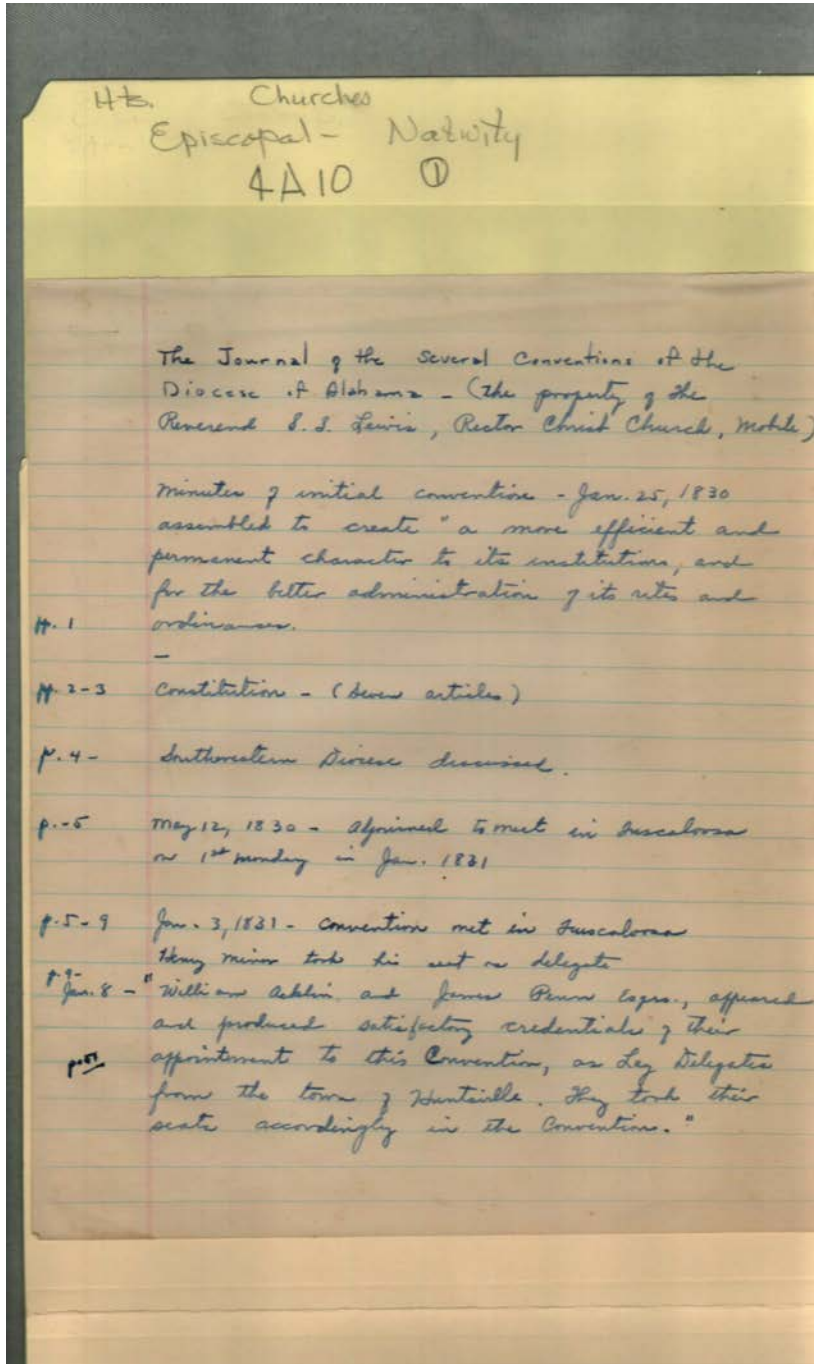 Hts. Churches
Episcopal - Nativity
4A10 ①
The Journal of the Several Conventions of the
Diocese of Alabama - (the property of the
Reverend S. S. Lewis, Rector Christ Church, Mobile)
minutes of initial convention - Jan. 25, 1830
assembled to create "a more efficient and
permanent character to its institutions, and
for the better administration of its rites and
p. 1 ordinances.
-
p. 2-3 Constitution - (seven articles)
p. 4 - Southwestern Diocese discussed.
p. -5 May 12, 1830 - adjourned to meet in Tuscaloosa
on 1st Monday in Jan. 1831
p. 5-9 Jan. 3, 1831 - Convention met in Tuscaloosa
Henry Minor took his seat as delegate
p. 9-
Jan. 8 - "William Acklin and James Penn Esqrs., appeared
and produced satisfactory credentials of their
appointment to this Convention, as Lay Delegates
from the town of Huntsville. They took their
seats accordingly in the Convention."